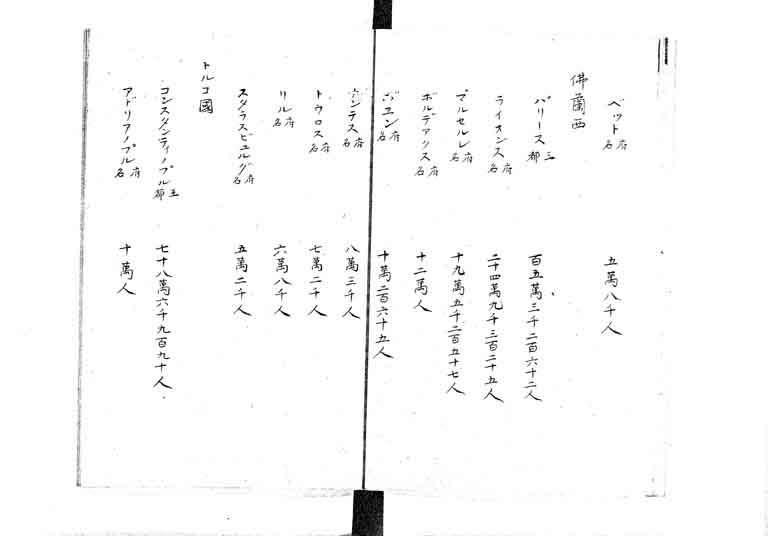 ペット 府名 五萬八千人
佛蘭西
パリース 王都 百五萬三千二百六十二人
ライオンス 府名 二十四萬九千三百二十五人
マルセルレ 府名 十九萬五千二百五十七人
ボルデアクス 府名 十二萬人
府名 十萬二百六十五人
ナンテス 府名 八萬三千人
トウロス 府名 七萬二千人
リル 府名 六萬八千人
スタラスビュルグ 府名 五萬二千人
トルコ國
コンスタンティノプル 王都 七十八萬六千九百九十人
アドリアノプル 府名 十萬人